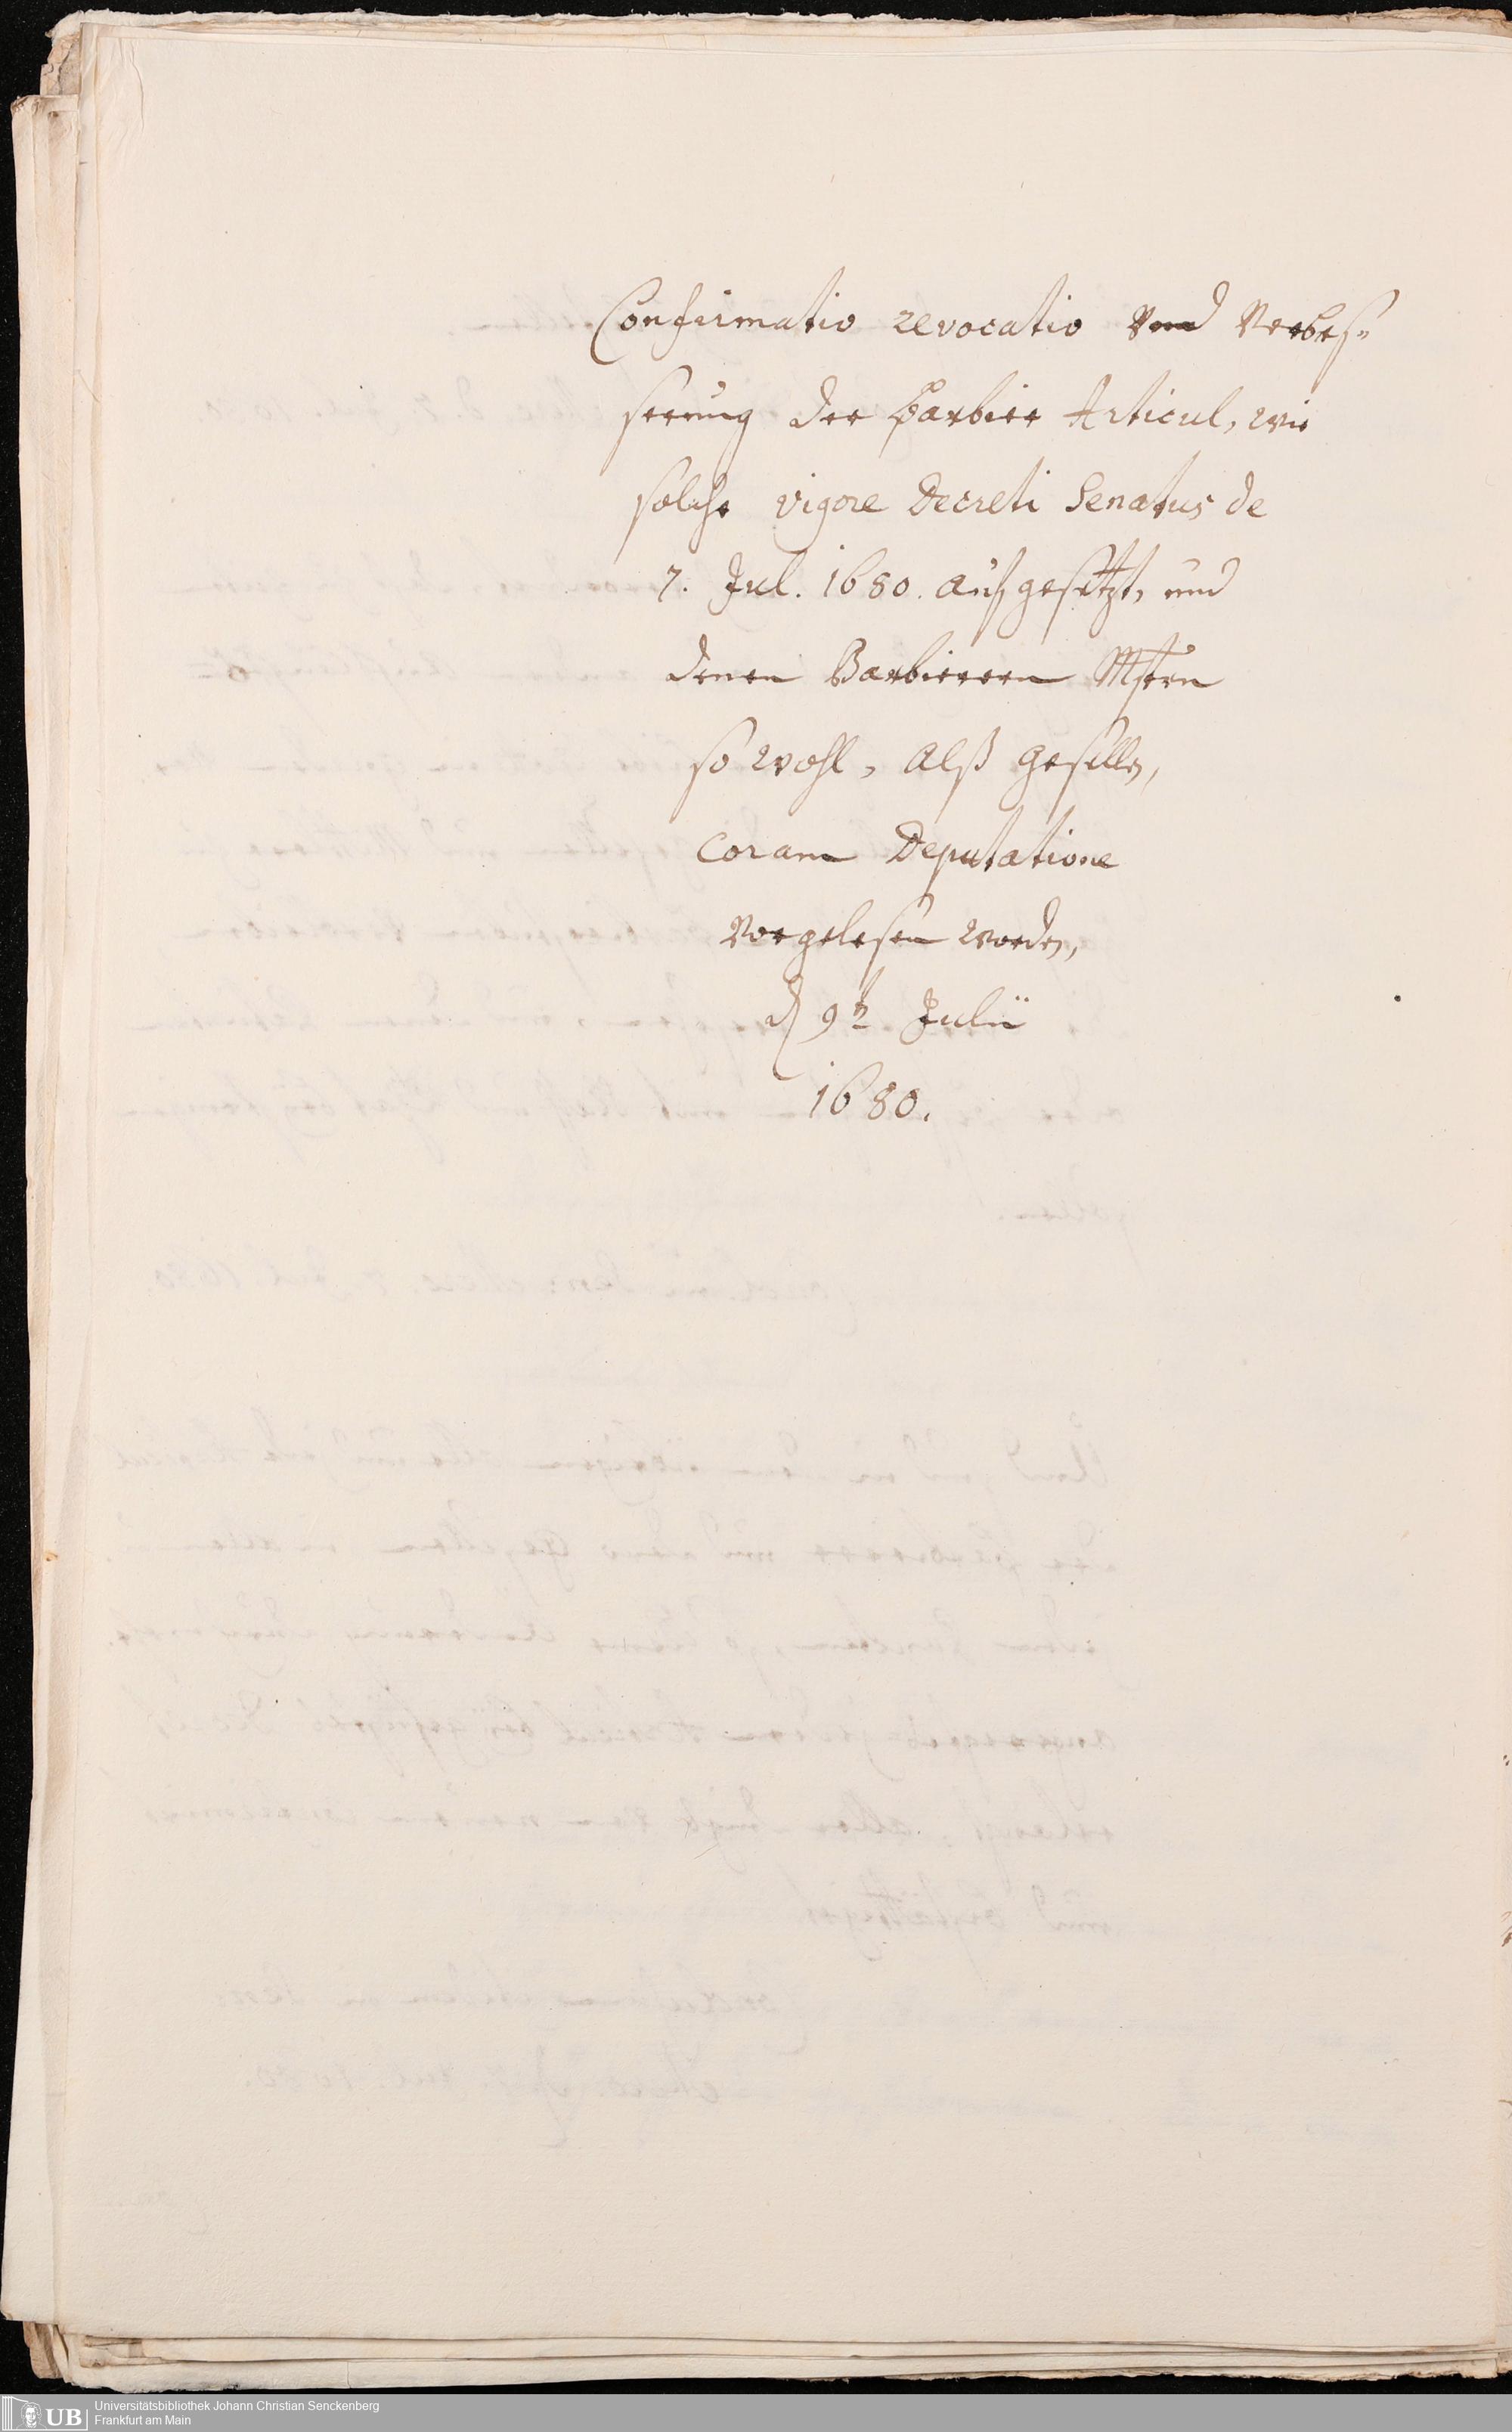 Confirmatio revocatio Vnd Verbeß-
serung der Barbirer Articul, wie
solche vigore Decreti Senatus de
7. Jul. 1680. aufgesetzt, und
denen Barbierern Mstern
so wohl, alß gesellen,
coram Deputatione
Vorgelesen worden,
d 9t Julii
1680.
UB
Universitätsbibliothek Johann Christian Senckenberg
Frankfurt am Main